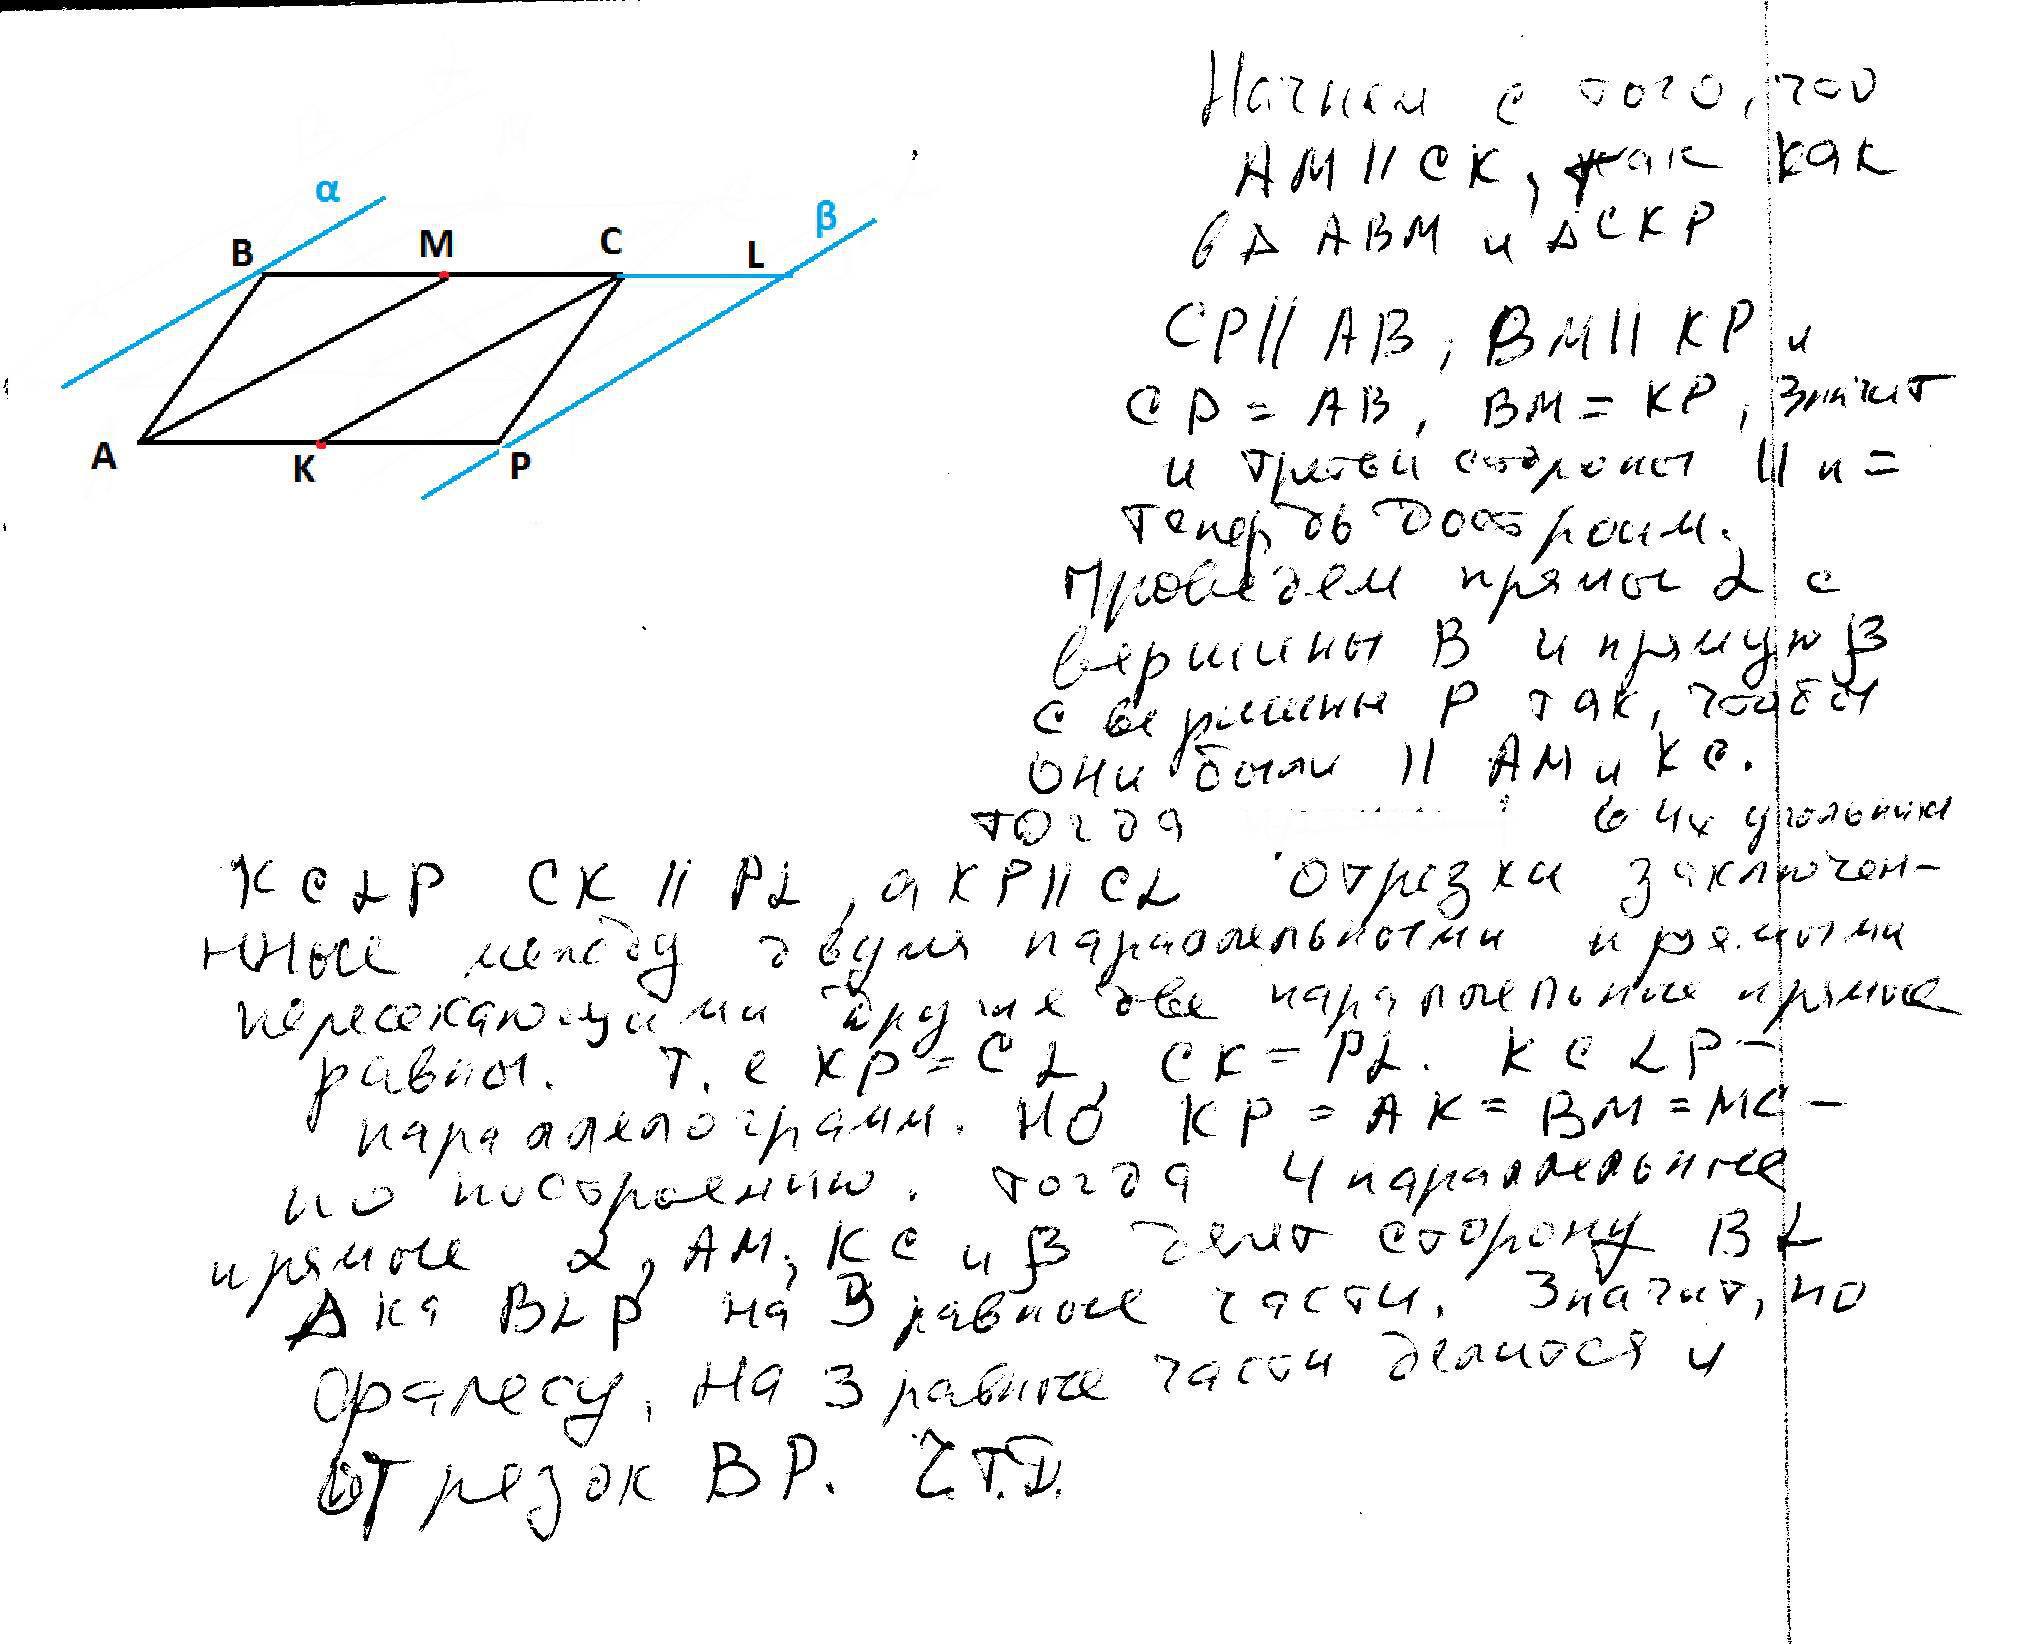 α
β
B M C L
A K P
Начнем с того, что
AM || CK, так как
в Δ ABM и Δ CKP
CP || AB, BM || KP и
CP = AB, BM = KP, значит
и третьи стороны || и =
Теперь достроим.
Проведем прямы α с
вершины B и прямую β
с вершины P так, чтобы
они были || AM и KC.
тогда в 4х угольнике
KCLP CK || PL, а KP || CL отрезки заключен-
нные между двумя параллельными прямыми
пересекающими другие две параллельные прямые
равны. т.е KP = CL, CK = PL. KCLP -
параллелограмм. Но KP = AK = BM = MC -
по построению. тогда 4 параллельные
прямые α, AM, KC и β делят сторону BL
Δ ка BLP на 3 равные части. Значит, по
Фалесу, на 3 равные части делится и
отрезок BP. Ч.Т.Д.